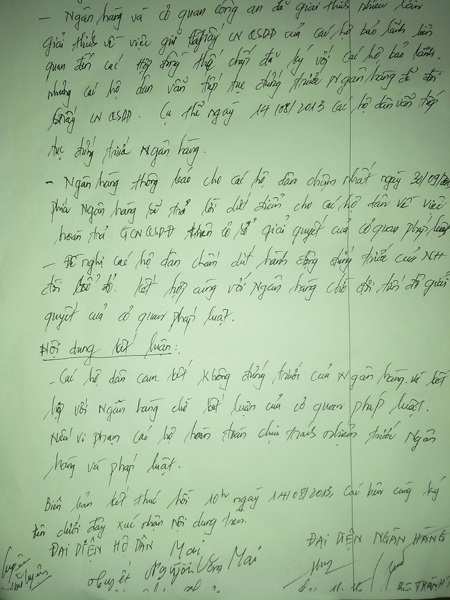 - Ngân hàng và cơ quan công an đã giải thích nhiều lần
giải thích về việc giữ giấy CN QSDĐ của các hộ bảo lãnh liên
quan đến các Hợp đồng thế chấp đã ký với các hộ bảo lãnh.
nhưng các hộ dân vẫn tiếp tục đứng trước Ngân hàng để đòi
Giấy CN QSDĐ. Cụ thể ngày 14/08/2013 các hộ dân vẫn tiếp
tục đứng trước Ngân hàng.
- Ngân hàng thông báo cho các hộ dân chậm nhất ngày 30/09/
phía Ngân hàng sẽ trả lời dứt điểm cho các hộ dân về việc
hoàn trả GCN QSDĐ có giải quyết của cơ quan pháp luật
- Đề nghị các hộ dân chấm dứt hành động đứng trước của NH
đòi sổ đỏ. Kết hợp cùng với Ngân hàng chờ đợi giải
quyết của cơ quan pháp luật.
Nội dung kết luận:
- Các hộ dân cam kết không đứng trước cửa Ngân hàng và kết
hợp với Ngân hàng chờ kết luận của cơ quan pháp luật.
Nếu vi phạm các hộ hoàn toàn chịu trách nhiệm trước Ngân
hàng và pháp luật.
Biên bản kết thúc hồi 10h ngày 14/08/2013, các bên cùng ký
tên dưới đây xác nhận nội dung trên.
ĐẠI DIỆN HỘ DÂN ĐẠI DIỆN NGÂN HÀNG
Mai
Nguyễn Mai